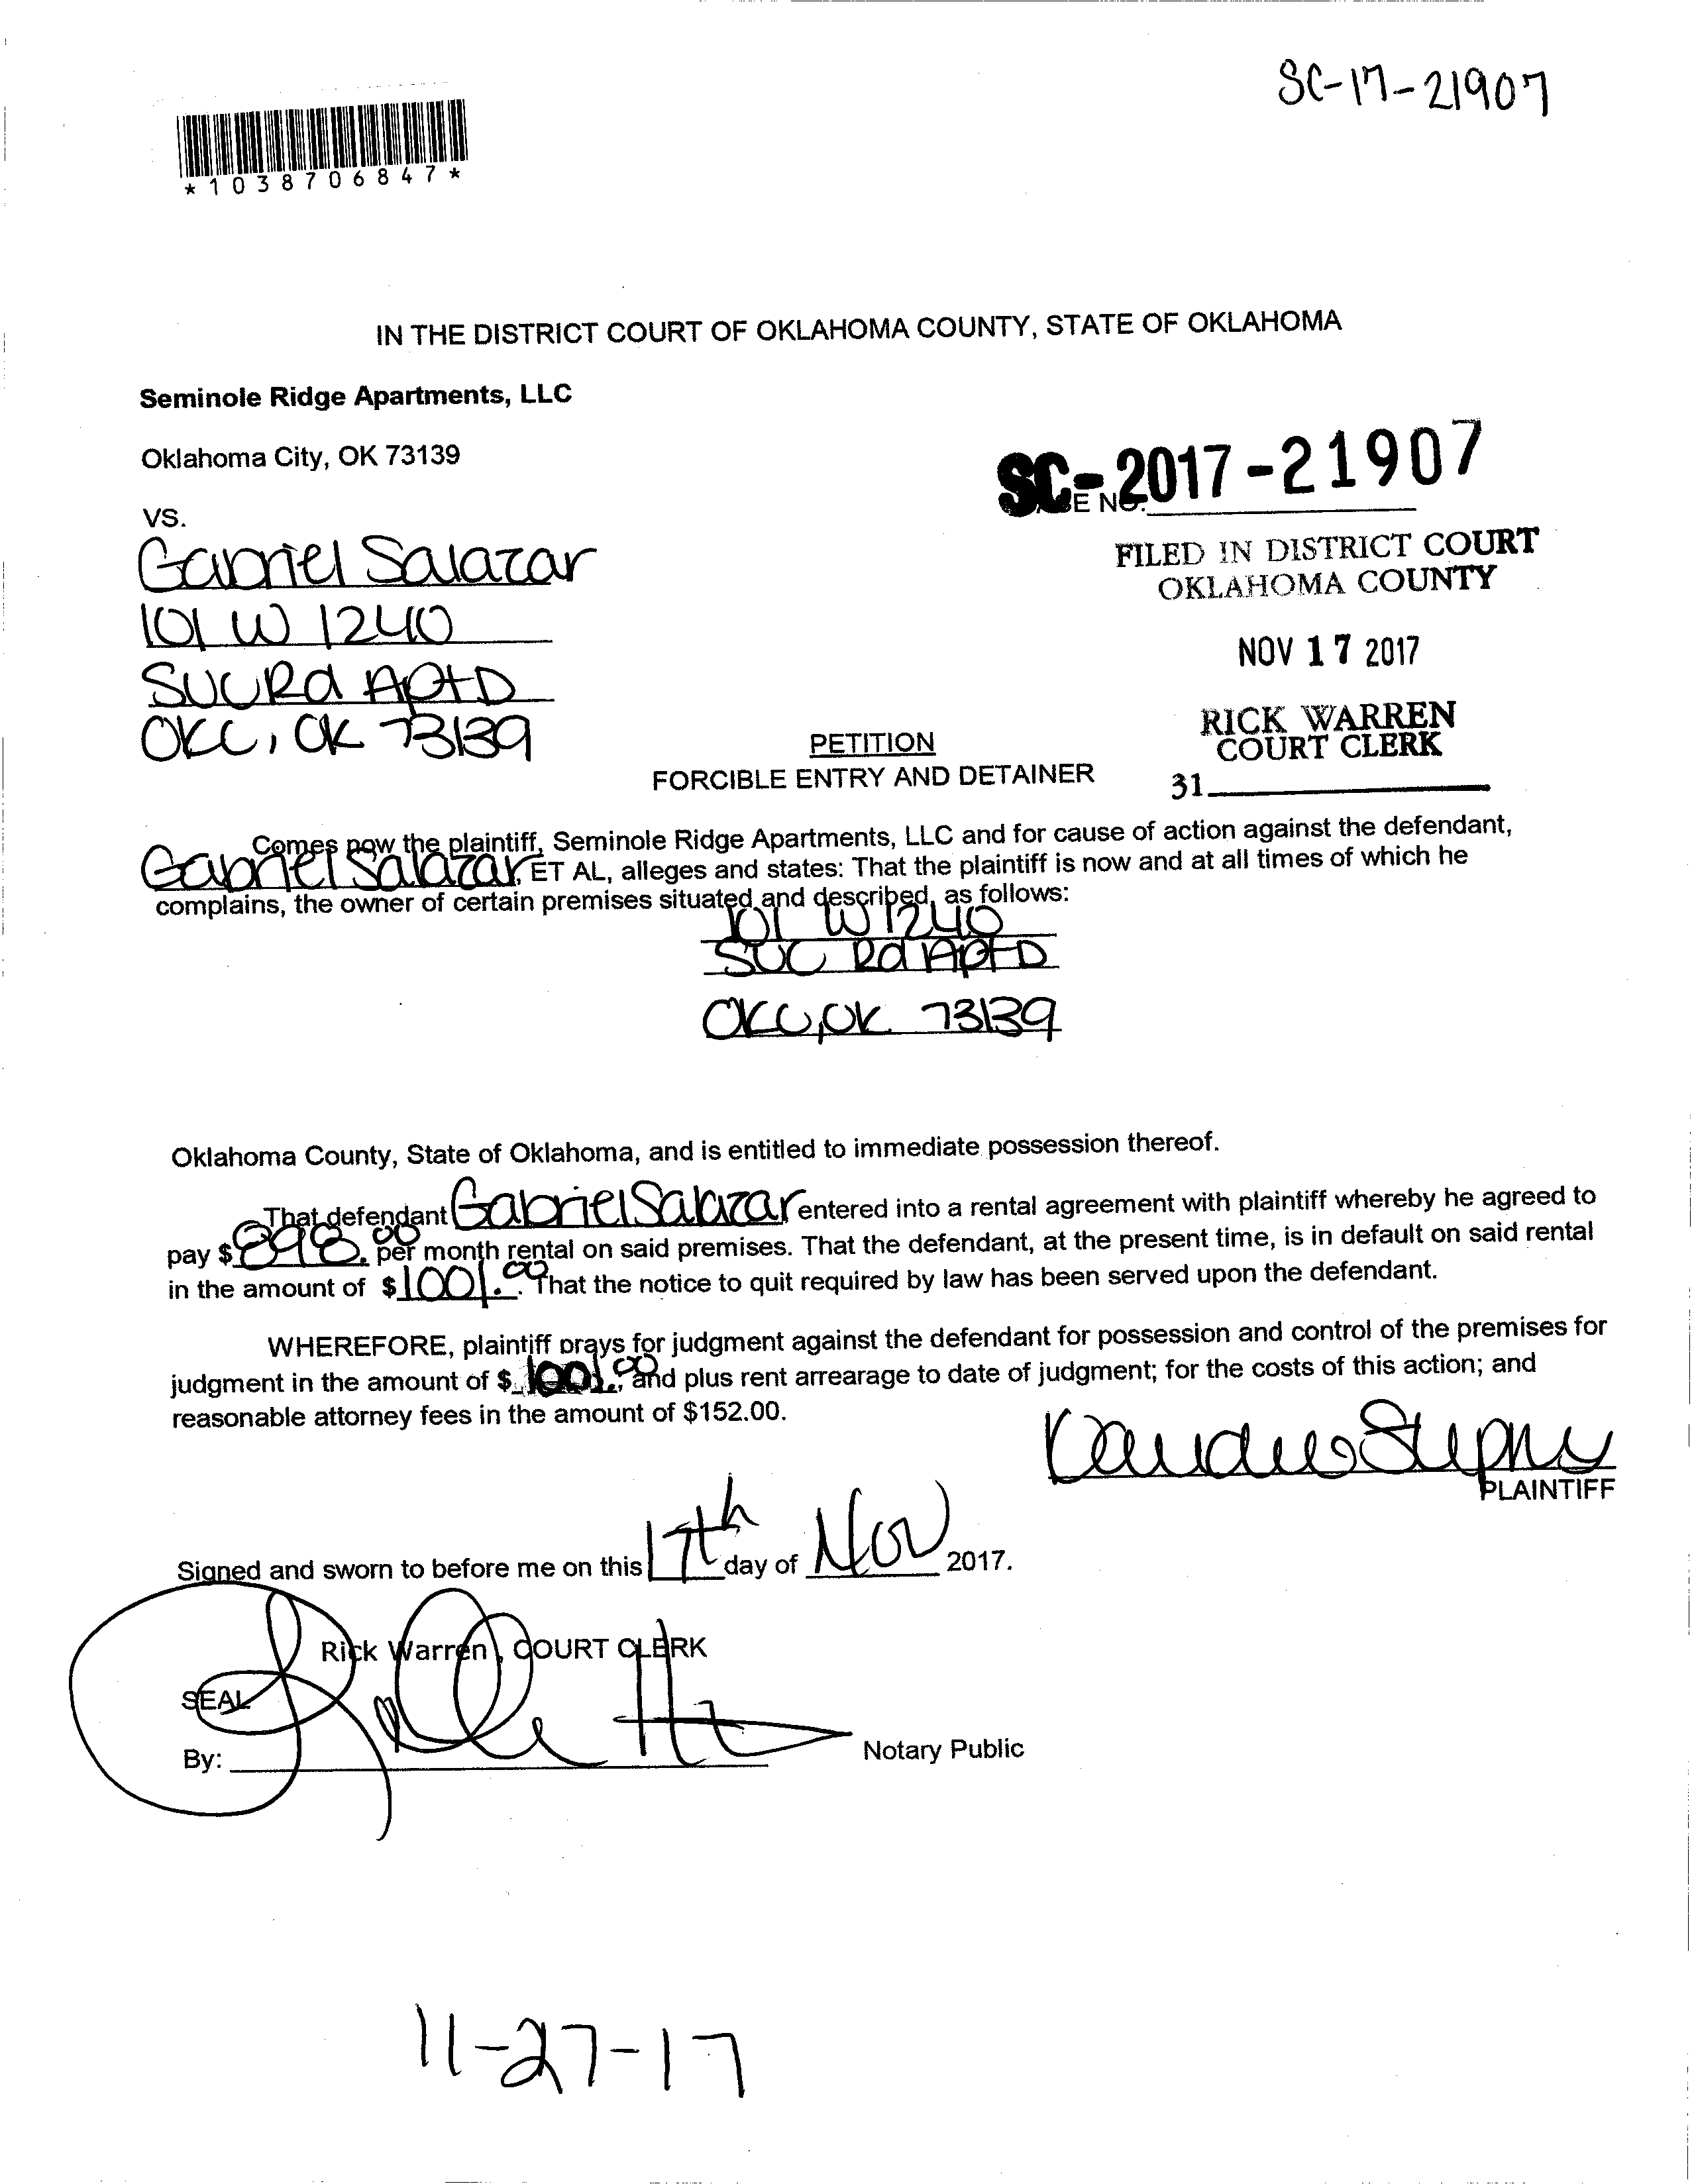 SC-17-21907
*1038706847*
IN THE DISTRICT COURT OF OKLAHOMA COUNTY, STATE OF OKLAHOMA
Seminole Ridge Apartments, LLC
Oklahoma City, OK 73139
SC-2017-21907
E NO.
VS.
Gabriel Salazar
101 W I240
SVC Rd Apt D
OKC, OK 73139
FILED IN DISTRICT COURT
OKLAHOMA COUNTY
NOV 17 2017
RICK WARREN
COURT CLERK
31
PETITION
FORCIBLE ENTRY AND DETAINER
Comes now the plaintiff, Seminole Ridge Apartments, LLC and for cause of action against the defendant,
Gabriel Salazar, ET AL, alleges and states: That the plaintiff is now and at all times of which he
complains, the owner of certain premises situated and described, as follows:
101 W I240
SVC Rd Apt D
OKC, OK 73139
Oklahoma County, State of Oklahoma, and is entitled to immediate possession thereof.
That defendant Gabriel Salazar entered into a rental agreement with plaintiff whereby he agreed to
pay $898.00 per month rental on said premises. That the defendant, at the present time, is in default on said rental
in the amount of $1001.00. That the notice to quit required by law has been served upon the defendant.
WHEREFORE, plaintiff prays for judgment against the defendant for possession and control of the premises for
judgment in the amount of $1001.00, and plus rent arrearage to date of judgment; for the costs of this action; and
reasonable attorney fees in the amount of $152.00.
PLAINTIFF
Signed and sworn to before me on this 17th day of Nov 2017.
Rick Warren, COURT CLERK
SEAL
By: Notary Public
11-27-17